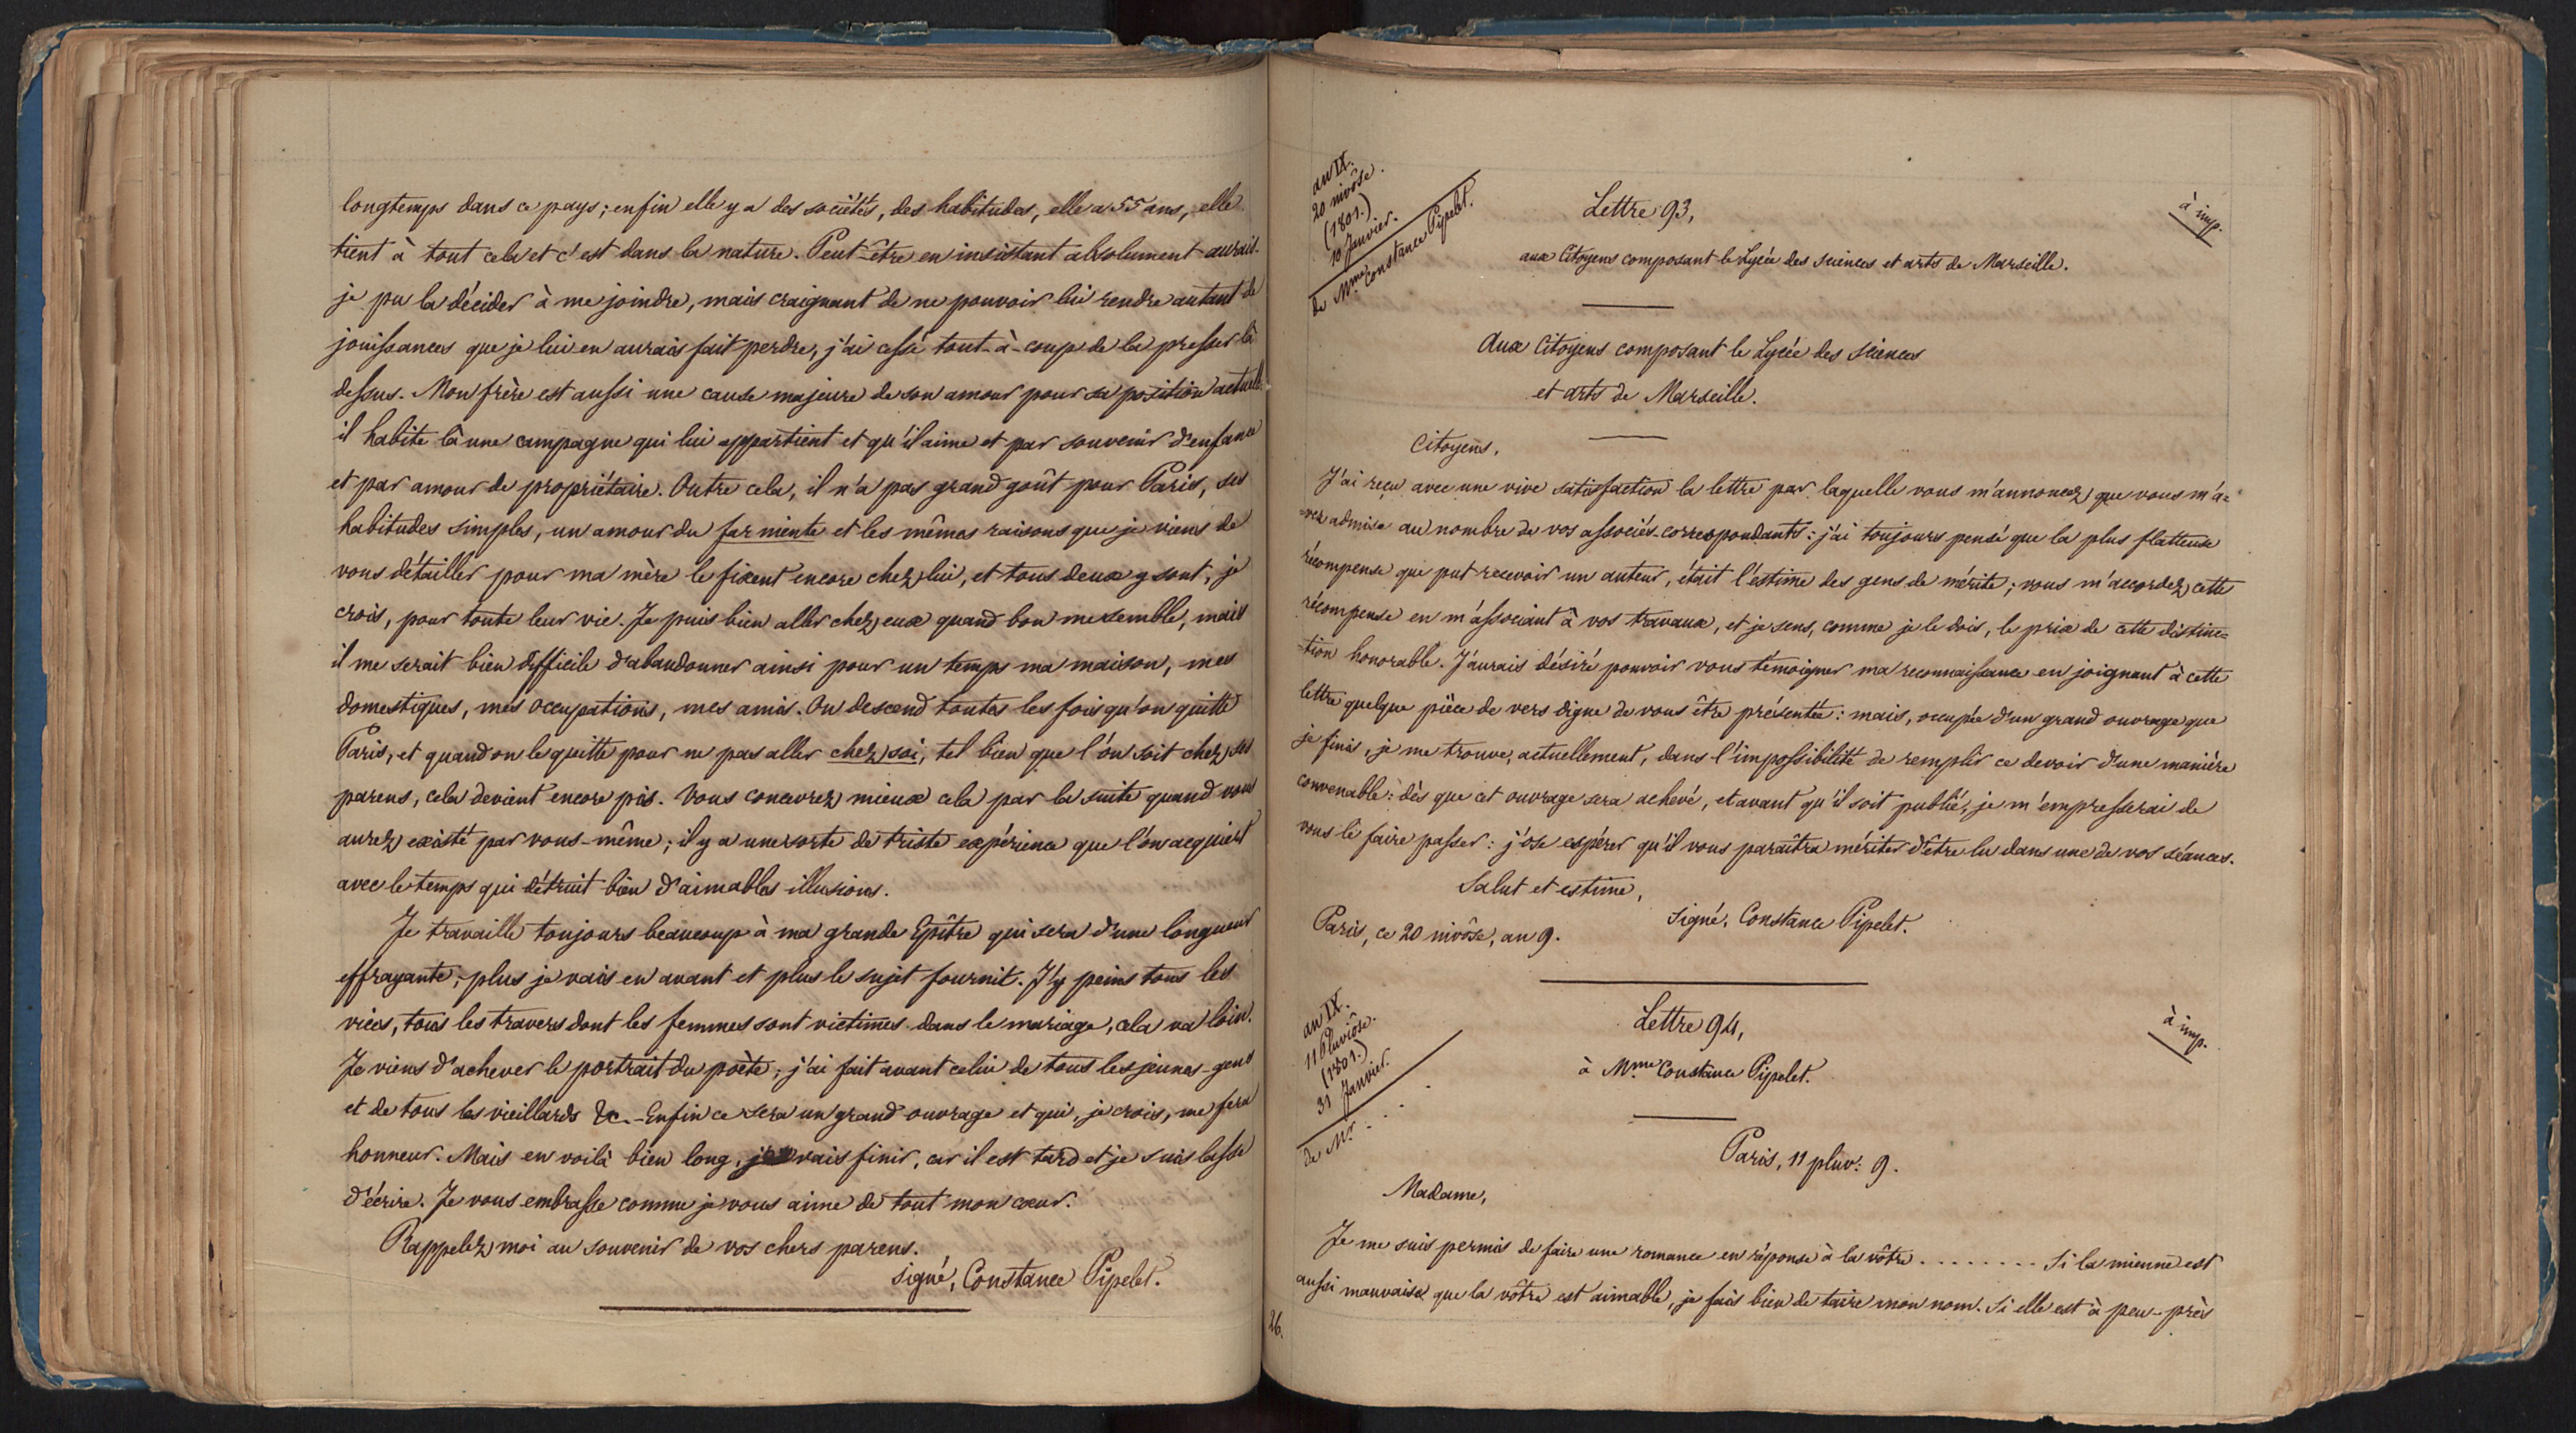 longtemps dans ce pays; enfin elle y a des sociétés, des habitudes, elle a 55 ans, elle
tient à tout cela et c'est dans la nature. Peut-être en insistant absolument aurais-
je pu la décider à me joindre, mais craignant de ne pouvoir lui rendre autant de
jouissances que je lui en aurais fait perdre, j'ai cessé tout-à-coup de la presser là
dessus. Mon frère est aussi une cause majeure de son amour pour sa position actuelle
il habite là une campagne qui lui appartient et qu'il aime et par souvenir d'enfance
et par amour de propriétaire. Outre cela, il n'a pas grand goût pour Paris, ses
habitudes simples, un amour du far niente et les mêmes raisons que je viens de
vous détailler pour ma mère le fixent encore chez lui, et tous deux y sont, je
crois, pour toute leur vie. Je puis bien aller chez eux quand bon me semble, mais
il me serait bien difficile d'abandonner ainsi pour un temps ma maison, mes
domestiques, mes occupations, mes amis. On descend toutes les fois qu'on quitte
Paris, et quand on le quitte pour ne pas aller chez soi, tel bien que l'on soit chez ses
parens, cela devient encore pis. Vous concevrez mieux cela par la suite quand vous
aurez existé par vous-même; il y a une sorte de triste expérience que l'on acquiert
avec le temps qui détruit bien d'aimables illusions.
Je travaille toujours beaucoup à ma grande Epître qui sera d'une longueur
effrayante; plus je vais en avant et plus le sujet fournit. J'y peins tous les
vices, tous les travers dont les femmes sont victimes dans le mariage, cela va loin.
Je viens d'achever le portrait du poète; j'ai fait avant celui de tous les jeunes-gens
et de tous les vieillards &c. - Enfin ce sera un grand ouvrage et qui, je crois, me fera
honneur. Mais en voilà bien long, je vais finir, car il est tard et je suis lasse
d'écrire. Je vous embrasse comme je vous aime de tout mon cœur.
Rappelez moi au souvenir de vos chers parens.
signé, Constance Pipelet.
an IX.
20 nivôse.
(1801.)
10 Janvier.
de Mme Constance Pipelet.
à imp.
Lettre 93,
aux Citoyens composant le Lycée des sciences et arts de Marseille.
Aux Citoyens composant le Lycée des sciences
et arts de Marseille.
Citoyens,
J'ai reçu avec une vive satisfaction la lettre par laquelle vous m'annoncez que vous m'a=
=vez admise au nombre de vos associés-correspondants: j'ai toujours pensé que la plus flatteuse
récompense que put recevoir un auteur, était l'estime des gens de mérite; vous m'accordez cette
récompense en m'associant à vos travaux, et je sens, comme je le dois, le prix de cette distinc=
=tion honorable. J'aurais désiré pouvoir vous témoigner ma reconnaissance en joignant à cette
lettre quelque pièce de vers digne de vous être présentée: mais, occupée d'un grand ouvrage que
je finis, je me trouve, actuellement, dans l'impossibilité de remplir ce devoir d'une manière
convenable: dès que cet ouvrage sera achevé, et avant qu'il soit publié, je m'empresserai de
vous le faire passer: j'ose espérer qu'il vous paraîtra mériter d'être lu dans une de vos séances.
Salut et estime,
signé, Constance Pipelet.
Paris, ce 20 nivôse, an 9.
an IX.
11 Pluviôse.
(1801.)
31 Janvier.
de Mr. . . .
à imp.
Lettre 94,
à Mme Constance Pipelet.
Paris, 11 pluv: 9.
Madame,
Je me suis permis de faire une romance en réponse à la vôtre . . . . . . . . Si la mienne est
aussi mauvaise que la vôtre est aimable, je fais bien de taire mon nom. Si elle est à peu-près
26.